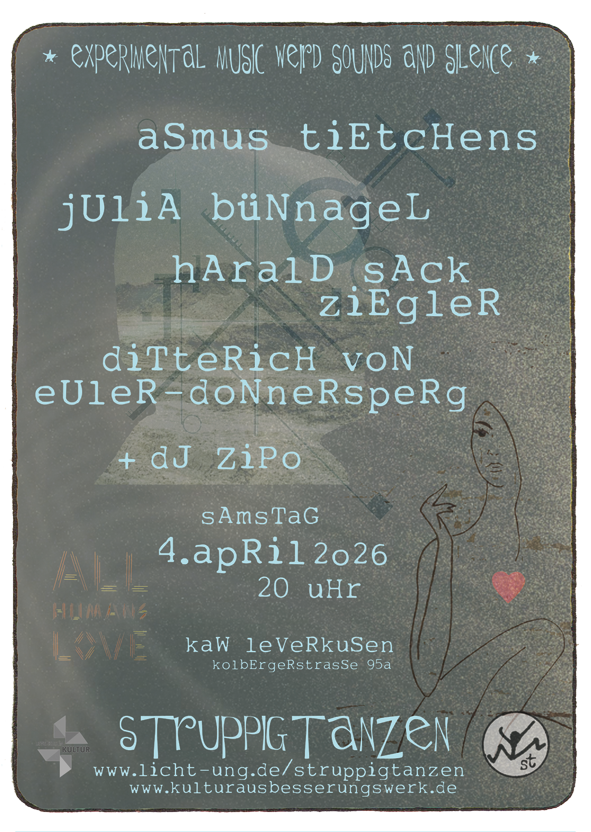 * expeRiMeNTaL MUSiC WeiRD SOUNDS AND SiLeNCe *
aSmus tiEtcHens
jUliA büNnageL
hAralD sAck
ziEgleR
diTteRicH voN
eUleR-doNneRspeRg
+ dJ ZiPo
sAmsTaG
4.apRil 2o26
20 uHr
ALL
HUMANS
LOVE
kaW leVeRkuSen
kolbErgeRstrasSe 95a
sTRUPPiG TaNZeN
KULTUR
st
www.licht-ung.de/struppigtanzen
www.kulturausbesserungswerk.de